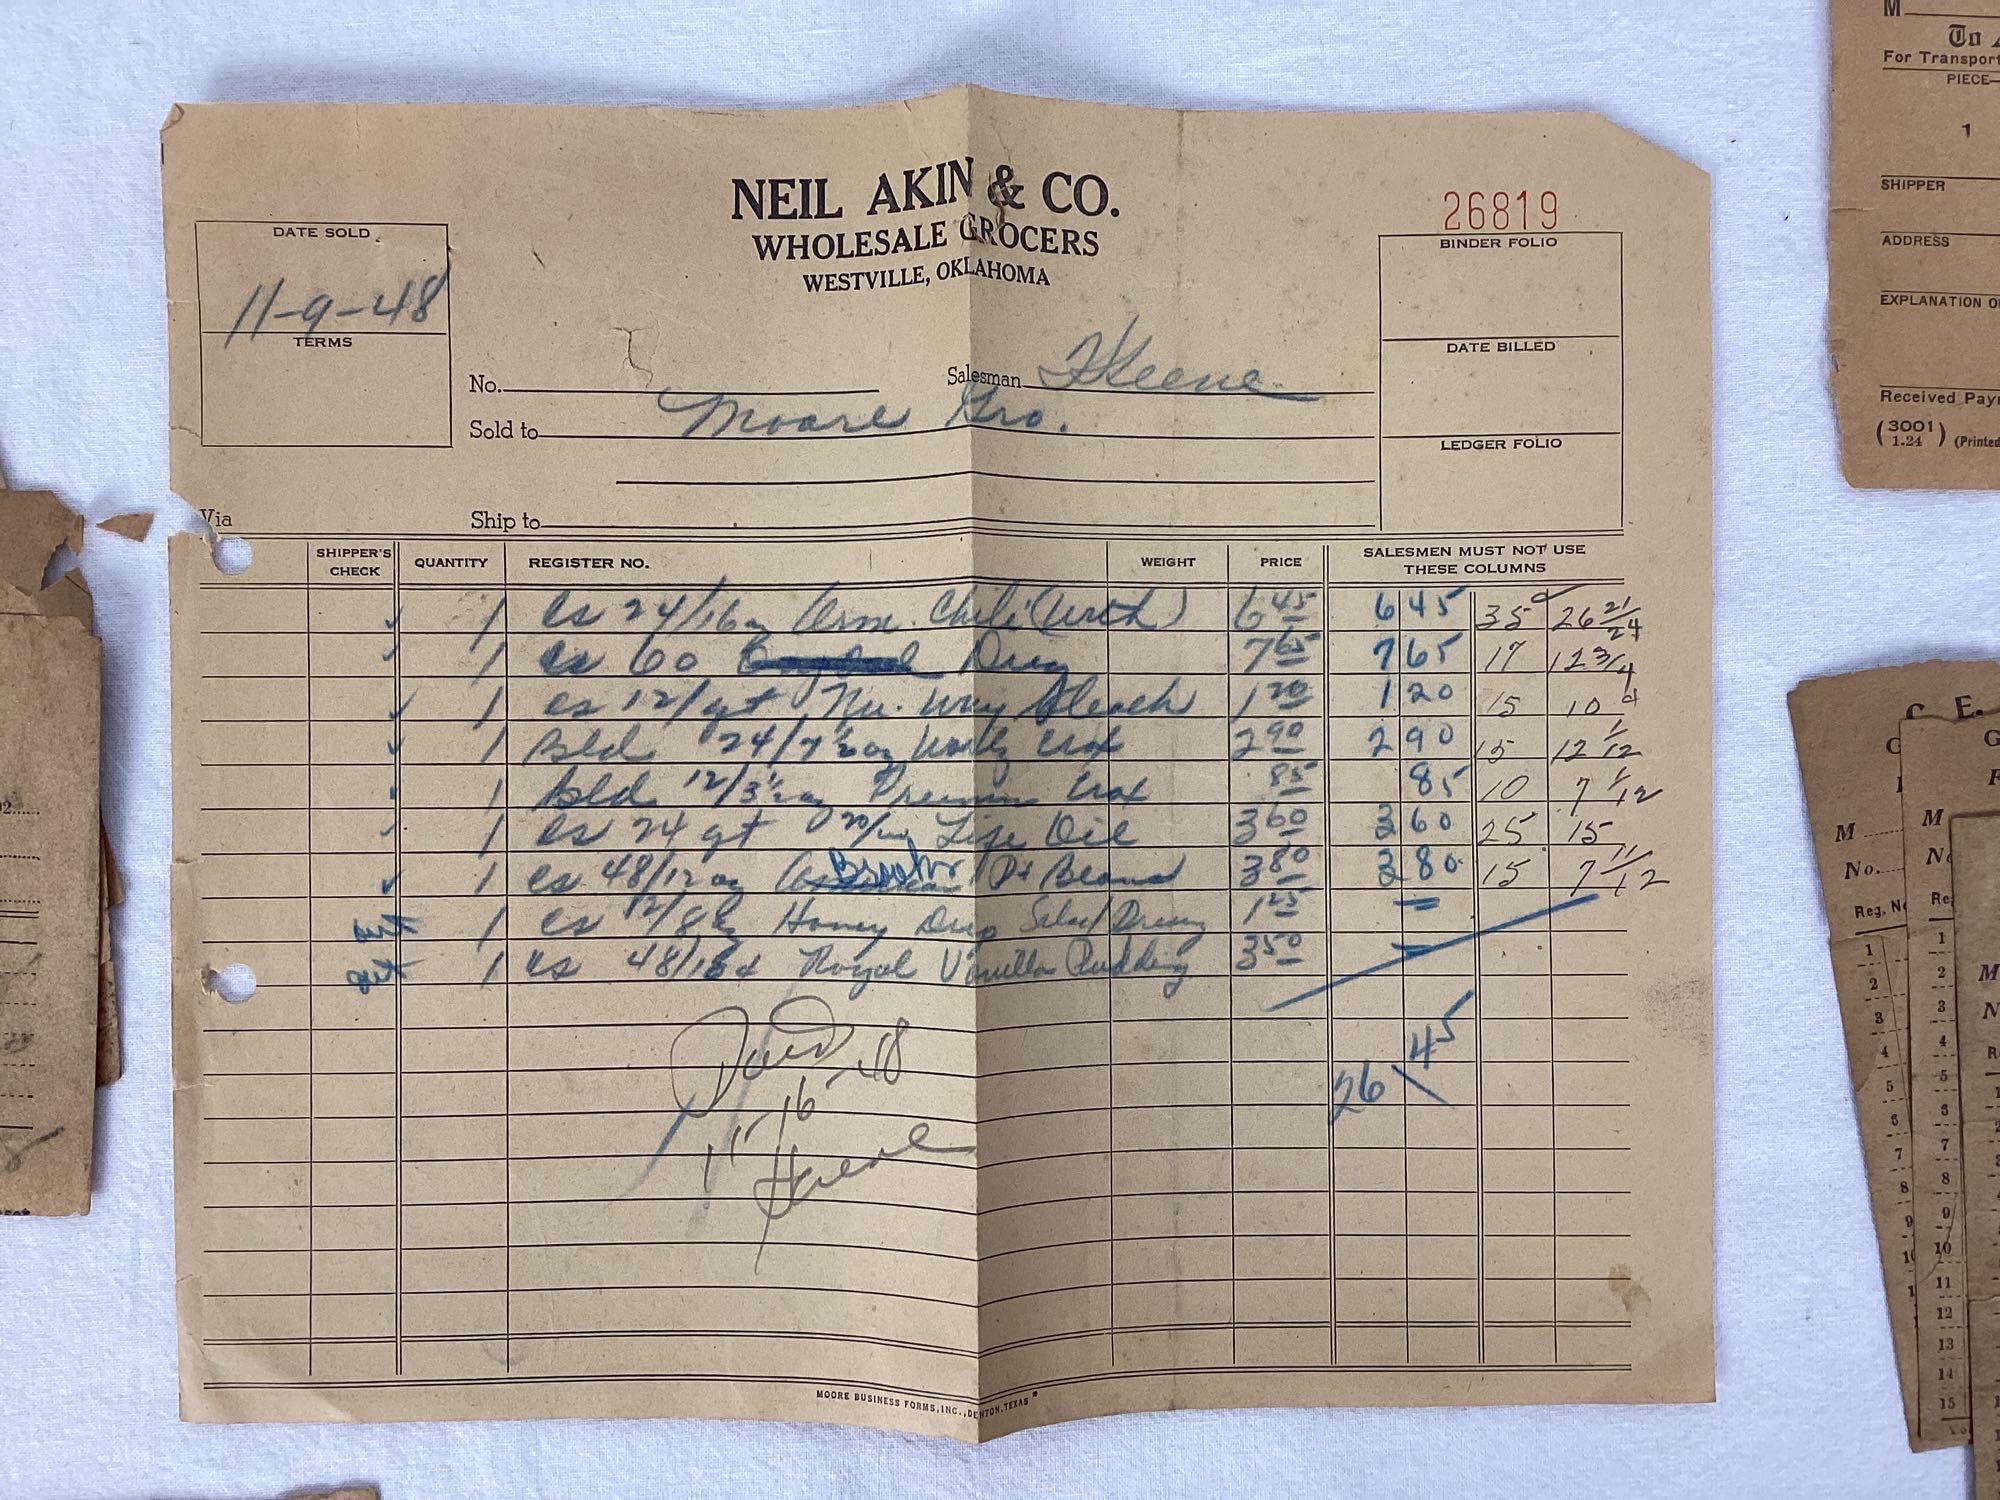 NEIL AKIN & CO.
WHOLESALE GROCERS
WESTVILLE, OKLAHOMA
26819
DATE SOLD
11-9-48
TERMS
BINDER FOLIO
DATE BILLED
LEDGER FOLIO
No. Salesman Keene
Sold to Moore Gro.
Via Ship to
SHIPPER'S CHECK QUANTITY REGISTER NO. WEIGHT PRICE SALESMEN MUST NOT USE THESE COLUMNS
1 Cs 24/16 oz Arm. Chili (With) 6 45 6 45 35 26 21/24
1 Cs 60 Duz 7 65 7 65 17 12 3/4
1 Cs 12/qt Nu-Way Bleach 1 20 1 20 15 10
1 Bld 24/7 1/2 oz Crax 2 90 2 90 15 12 1/12
1 Bld 12/3 1/2 oz Premium Crax 85 85 10 7 1/12
1 Cs 24 qt Life Oil 3 60 3 60 25 15
1 Cs 48/12 oz Brooks P+ Beans 3 80 3 80 15 7 11/12
out 1 Cs 12/8 oz Honey Dew Salad Dressing 1 25
out 1 Cs 48/ Royal Vanilla Pudding 3 50
26 45
Paid
11-16-48
Keene
MOORE BUSINESS FORMS, INC., DENTON, TEXAS
M
To
For Transport
PIECE
1
SHIPPER
ADDRESS
EXPLANATION
Received
(3001 1.24) (Printed
E.
M
No.
Reg.
1
2
3
4
5
6
7
8
9
10
11
12
13
14
15